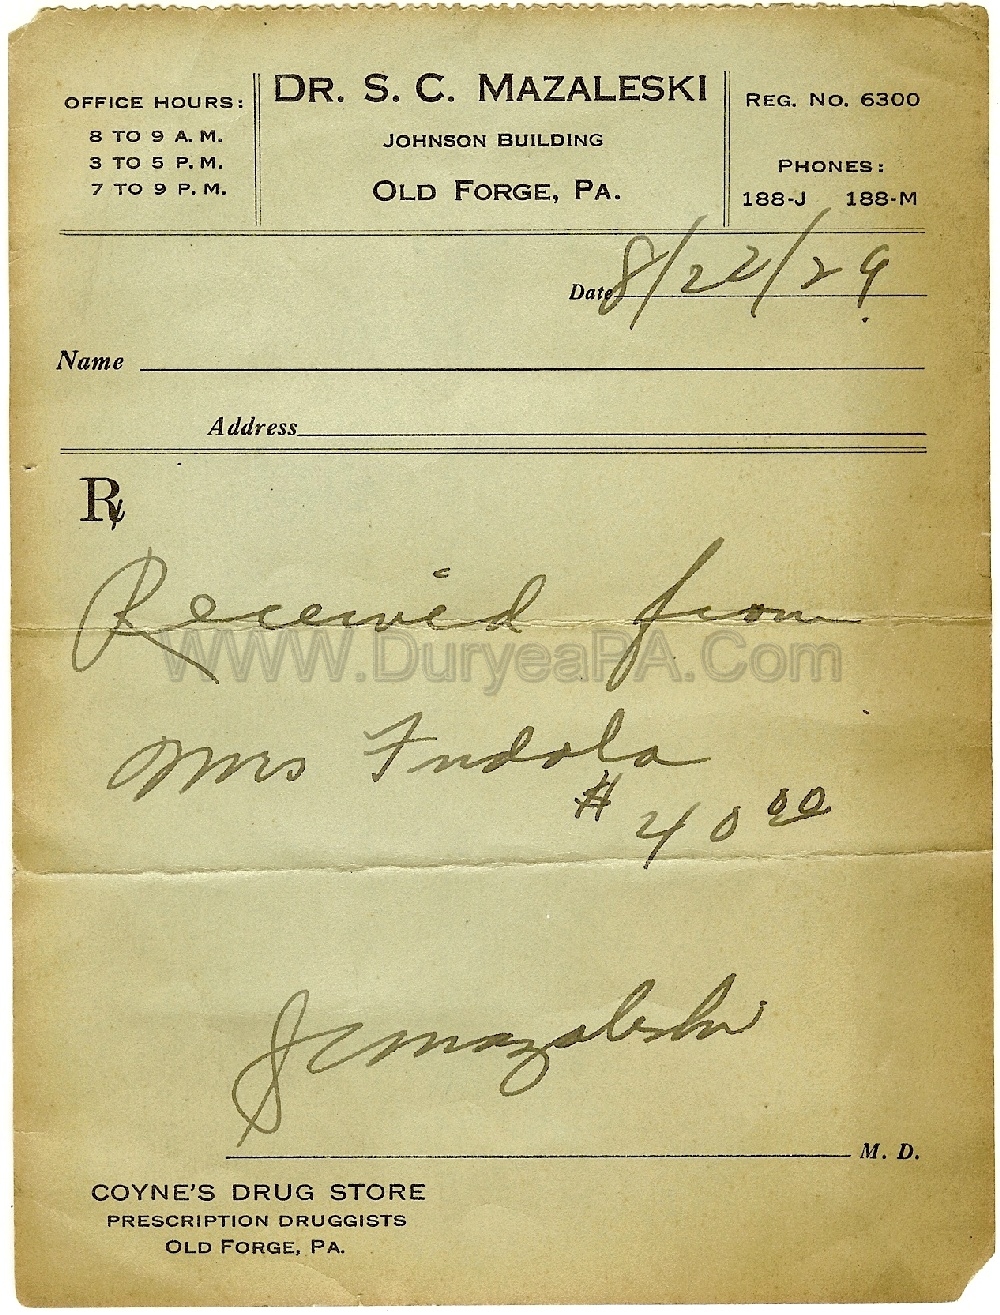 OFFICE HOURS:
8 TO 9 A. M.
3 TO 5 P. M.
7 TO 9 P. M.
DR. S. C. MAZALESKI
JOHNSON BUILDING
OLD FORGE, PA.
REG. NO. 6300
PHONES:
188-J 188-M
Date 8/22/29
Name
Address
Rx
Received from
WWW.DuryeaPA.Com
Mrs Fudala
# 40 00
S C Mazaleski
M. D.
COYNE'S DRUG STORE
PRESCRIPTION DRUGGISTS
OLD FORGE, PA.